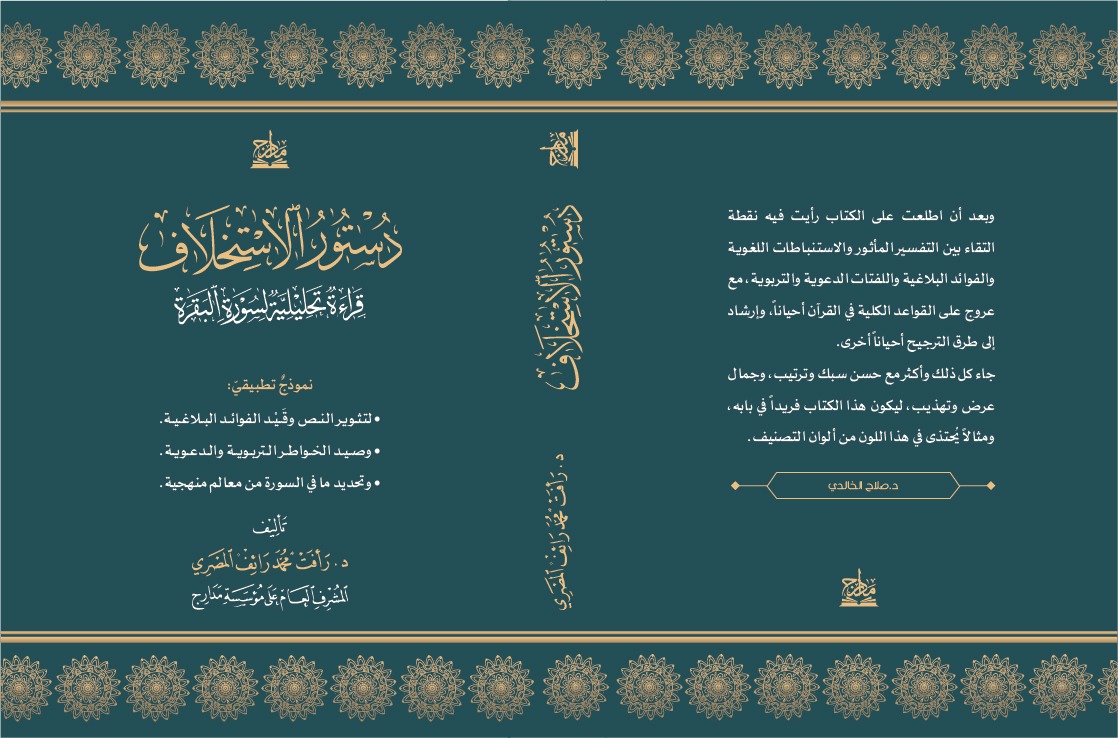 مدارج
دُسْتُورُ الِاسْتِخْلَافِ
قِرَاءَةٌ تَحْلِيْلِيَّةٌ لِسُوْرَةِ الْبَقَرَةِ
نموذجٌ تطبيقيَ:
• لتثوير النص وقَيْد الفوائد البلاغية.
• وصيد الخواطر التربوية والدعوية.
• وتحديد ما في السورة من معالم منهجية.
تَأْلِيْف
د. رَأفَتْ مُحَمَّد رَائِف الْمَصْرِي
الْمُشْرِف الْعَام عَلَى مُؤَسَّسَةِ مَدَارِج
مدارج
دُسْتُورُ الِاسْتِخْلَافِ
د. رَأفَتْ مُحَمَّد رَائِف الْمَصْرِي
وبعد أن اطلعت على الكتاب رأيت فيه نقطة
التقاء بين التفسير المأثور والاستنباطات اللغوية
والفوائد البلاغية واللفتات الدعوية والتربوية، مع
عروج على القواعد الكلية في القرآن أحياناً، وإرشاد
إلى طرق الترجيح أحياناً أخرى.
جاء كل ذلك وأكثر مع حسن سبك وترتيب، وجمال
عرض وتهذيب، ليكون هذا الكتاب فريداً في بابه،
ومثالاً يُحتذى في هذا اللون من ألوان التصنيف.
د.صلاح الخالدي
مدارج